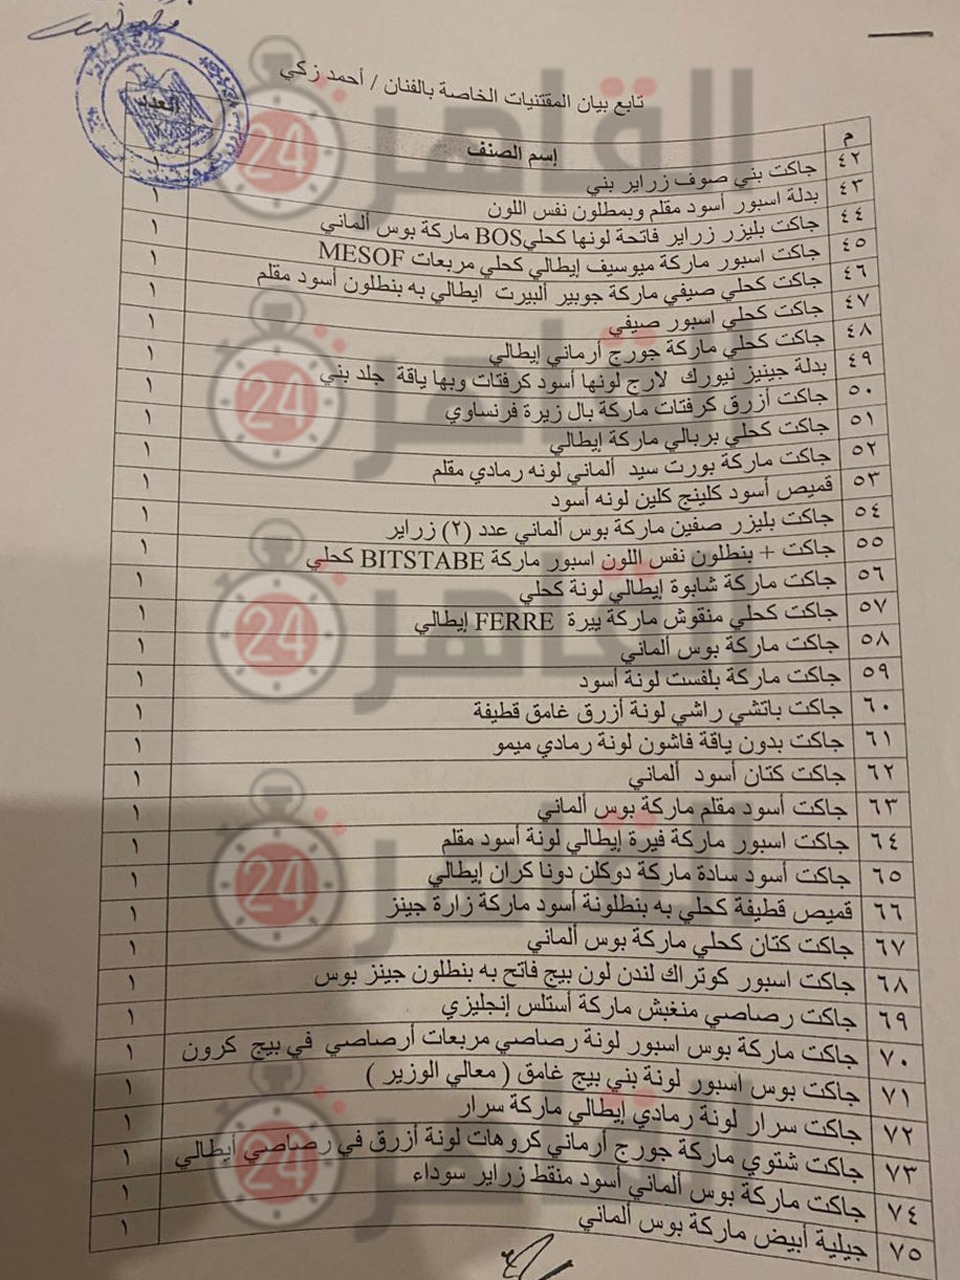 تابع بيان المقتنيات الخاصة بالفنان / أحمد زكي
م إسم الصنف العدد
٤٢ جاكت بني صوف زراير بني ١
٤٣ بدلة اسبور أسود مقلم وبمطلون نفس اللون ١
٤٤ جاكت بليزر زراير فاتحة لونها كحلي BOS ماركة بوس ألماني ١
٤٥ جاكت اسبور ماركة ميوسيف إيطالي كحلي مربعات MESOF ١
٤٦ جاكت كحلي صيفي ماركة جوبير ألبيرت ايطالي به بنطلون أسود مقلم ١
٤٧ جاكت كحلي اسبور صيفي ١
٤٨ جاكت كحلي ماركة جورج أرماني إيطالي ١
٤٩ بدلة جينيز نيورك لارج لونها أسود كرفتات وبها ياقة جلد بني ١
٥٠ جاكت أزرق كرفتات ماركة بال زيرة فرنساوي ١
٥١ جاكت كحلي بربالي ماركة إيطالي ١
٥٢ جاكت ماركة بورت سيد ألماني لونه رمادي مقلم ١
٥٣ قميص أسود كلينج كلين لونه أسود ١
٥٤ جاكت بليزر صفين ماركة بوس ألماني عدد (٢) زراير ١
٥٥ جاكت + بنطلون نفس اللون اسبور ماركة BITSTABE كحلي ١
٥٦ جاكت ماركة شابوة إيطالي لونة كحلي ١
٥٧ جاكت كحلي منقوش ماركة بيرة FERRE إيطالي ١
٥٨ جاكت ماركة بوس ألماني ١
٥٩ جاكت ماركة بلفست لونة أسود ١
٦٠ جاكت باتشي راشي لونة أزرق غامق قطيفة ١
٦١ جاكت بدون ياقة فاشون لونة رمادي ميمو ١
٦٢ جاكت كتان أسود ألماني ١
٦٣ جاكت أسود مقلم ماركة بوس ألماني ١
٦٤ جاكت اسبور ماركة فيرة إيطالي لونة أسود مقلم ١
٦٥ جاكت أسود سادة ماركة دوكلن دونا كران إيطالي ١
٦٦ قميص قطيفة كحلي به بنطلونة أسود ماركة زارة جينز ١
٦٧ جاكت كتان كحلي ماركة بوس ألماني ١
٦٨ جاكت اسبور كوتراك لندن لون بيج فاتح به بنطلون جينز بوس ١
٦٩ جاكت رصاصي منغبش ماركة أستلس إنجليزي ١
٧٠ جاكت ماركة بوس اسبور لونة رصاصي مربعات أرصاصي في بيج كرون ١
٧١ جاكت بوس اسبور لونة بني بيج غامق ( معالي الوزير ) ١
٧٢ جاكت سرار لونة رمادي إيطالي ماركة سرار ١
٧٣ جاكت شتوي ماركة جورج أرماني كروهات لونة أزرق في رصاصي أيطالي ١
٧٤ جاكت ماركة بوس ألماني أسود منقط زراير سوداء ١
٧٥ جيلية أبيض ماركة بوس ألماني ١
القاهرة 24
القاهرة 24
القاهرة 24
القاهرة 24
القاهرة 24